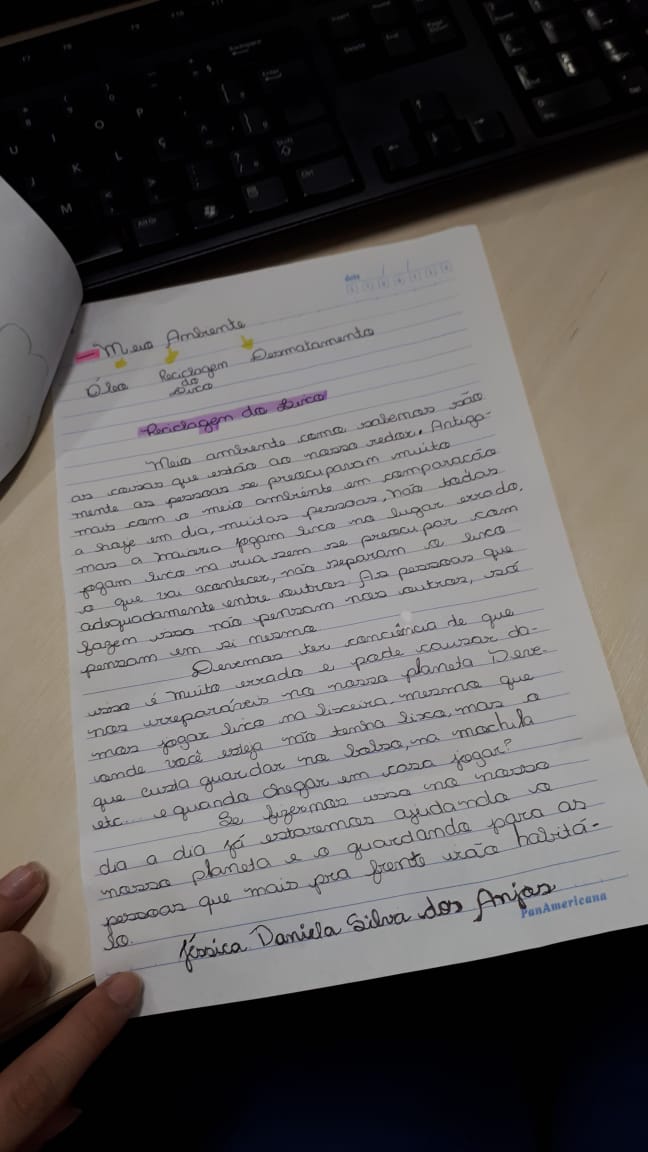 data
- Meio Ambiente
Óleo Reciclagem do Lixo Desmatamento
Reciclagem do Lixo
Meio ambiente como sabemos são
as coisas que estão ao nosso redor. Antiga-
mente as pessoas se preocupavam muito
mais com o meio ambiente em comparação
a hoje em dia, muitas pessoas, não todas
mas a maioria jogam lixo no lugar errado,
jogam lixo na rua sem se preocupar com
o que vai acontecer, não separam o lixo
adequadamente entre outros. As pessoas que
fazem isso não pensam nos outros, só
pensam em si mesma
Devemos ter conciência de que
isso é muito errado e pode causar da-
nos irreparáveis no nosso planeta Deve-
mos jogar lixo na lixeira, mesmo que
onde você esteja não tenha lixo, mas o
que custa guardar no bolso, na mochila
etc... e quando chegar em casa jogar?
Se fizermos isso no nosso
dia a dia já estaremos ajudando o
nosso planeta e o guardando para as
pessoas que mais pra frente irão habitá-
lo.
Jéssica Daniela Silva dos Anjos
PanAmericana